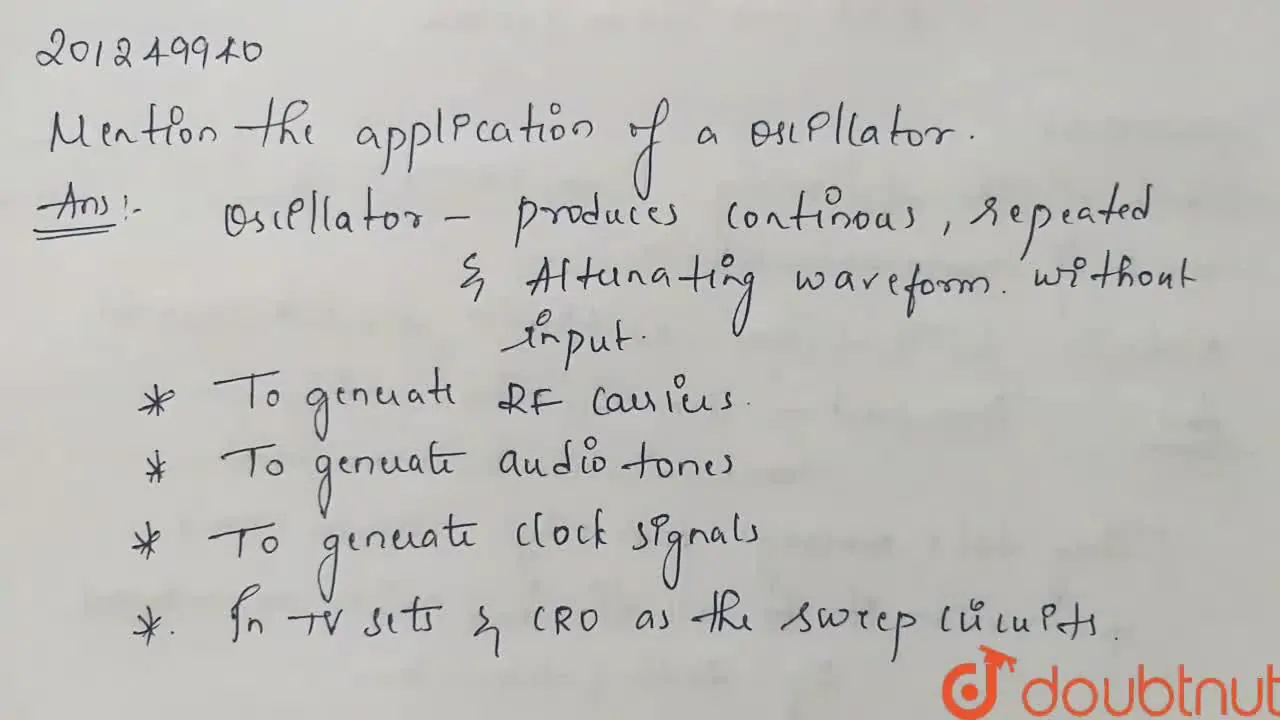 201249940
Mention the application of a oscillator.
Ans:- Oscillator - produces continous, repeated
& Alternating waveform. without
input.
* To generate RF carriers.
* To generate audio tones
* To generate clock signals
*. In TV sets & CRO as the sweep circuits.
doubtnut